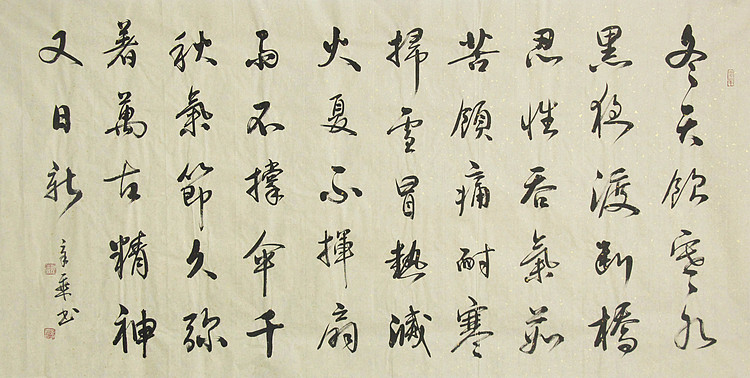 冬天飲寒水
黑夜渡断橋
忍性吞氣茹
苦領痛耐寒
掃雪冒熱滅
火夏不揮扇
雨不撐傘千
秋氣節久弥
著萬古精神
又日新
书